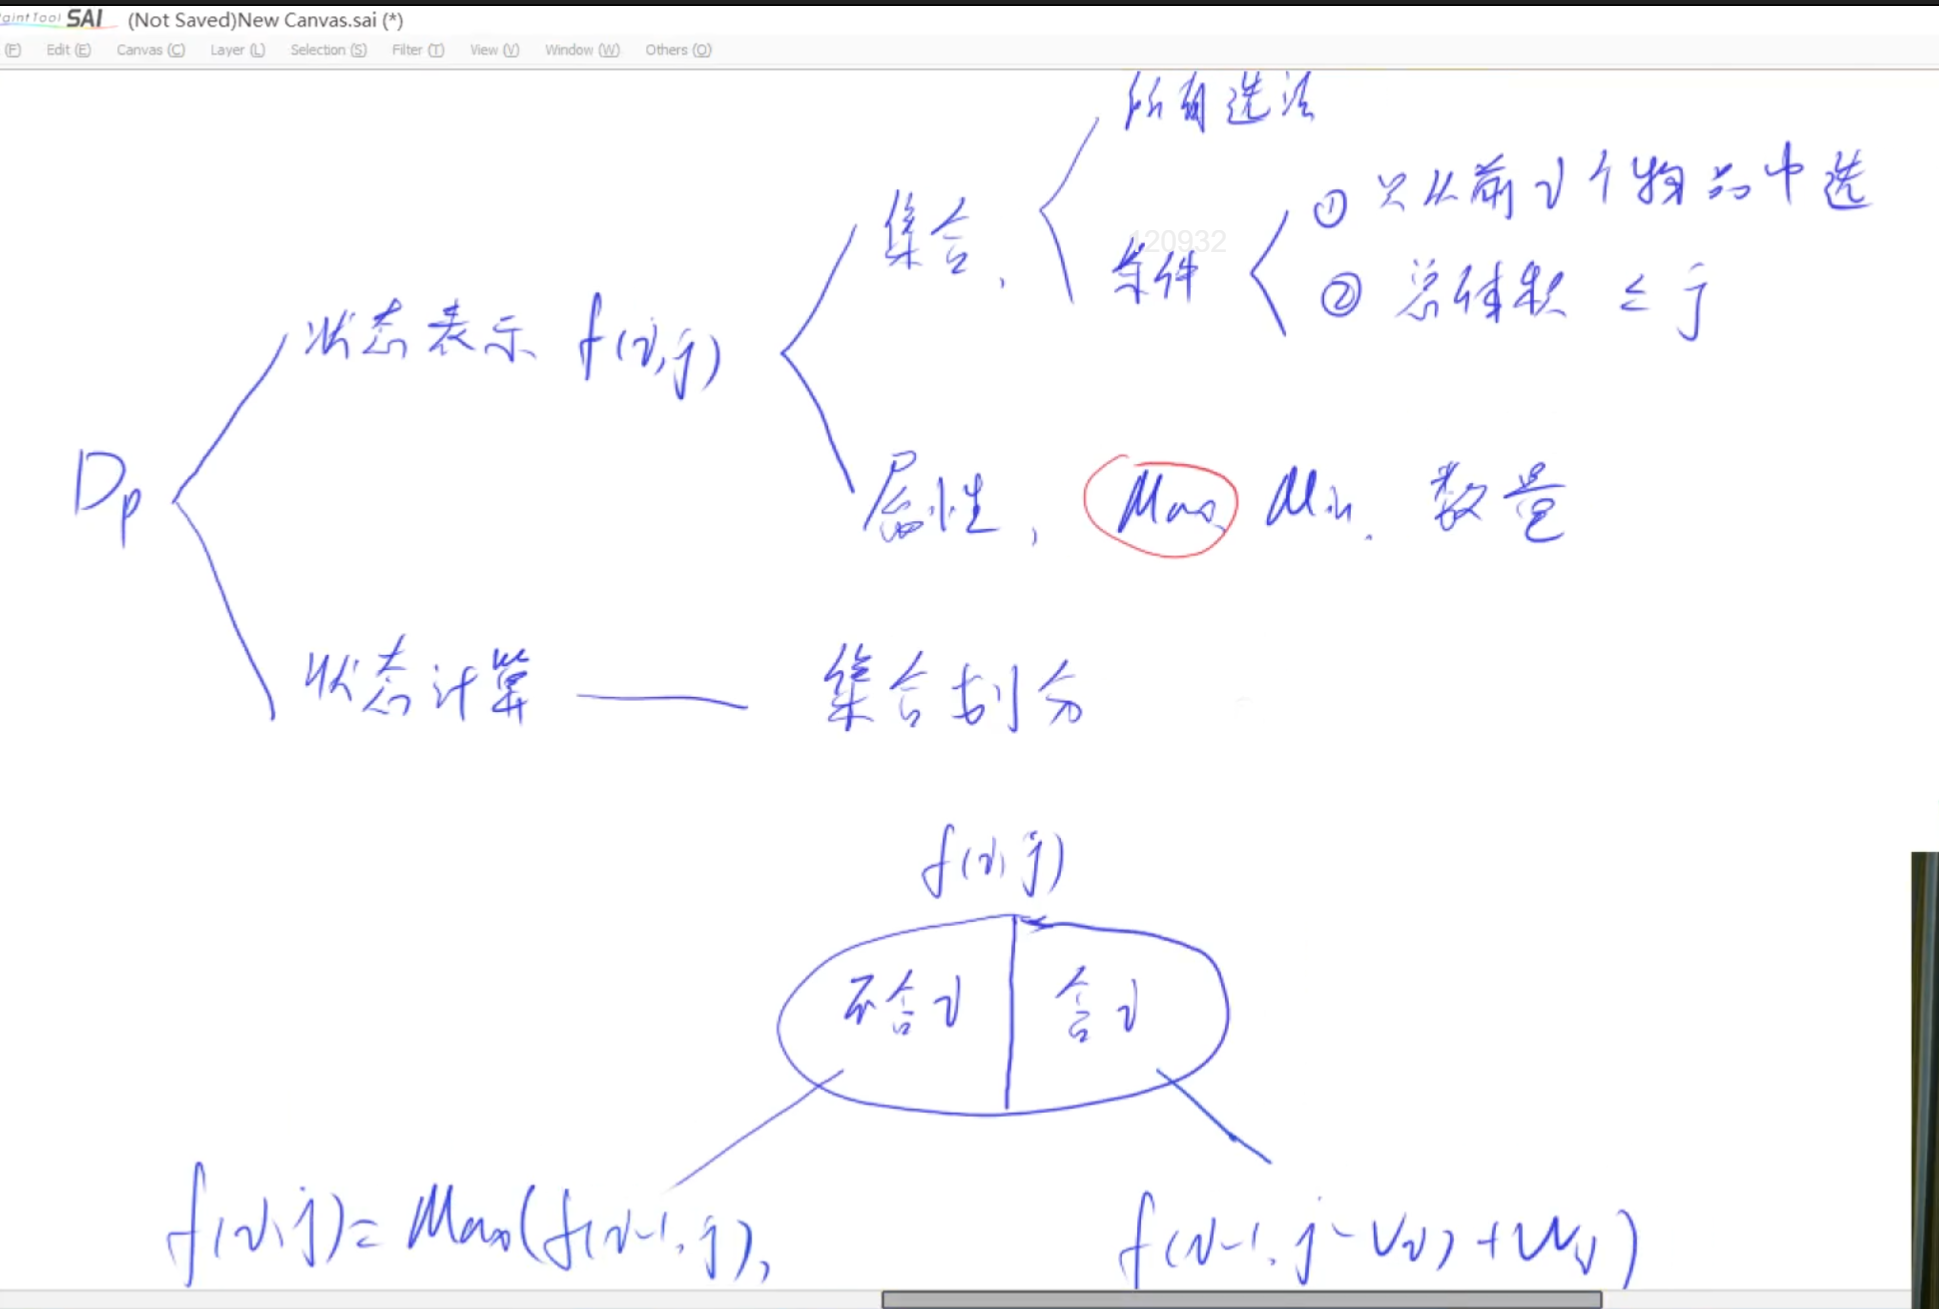 PaintTool SAI (Not Saved)New Canvas.sai (*)
(F) Edit (E) Canvas (C) Layer (L) Selection (S) Filter (T) View (V) Window (W) Others (O)
所有选法
① 只从前i个物品中选
集合、
120932
条件
② 总体积 ≤ j
状态表示 f(i,j)
Dp
属性、 Max, Min、 数量
状态计算 —— 集合划分
f(i,j)
不含i 含i
f(i,j)= Max(f(i-1,j), f(i-1,j-Vi)+Wi)